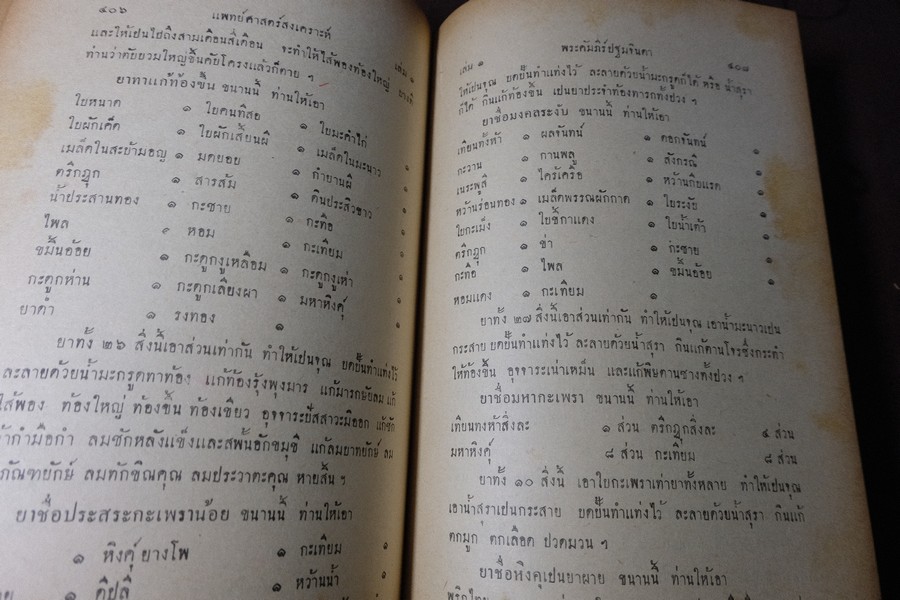 ๔๐๖ แพทย์ศาสตร์สงเคราะห์
และให้เป็นไข้ถึงสามเดือนสี่เดือน จะทำให้ไส้พองท้องใหญ่
ท่านว่าตับย้วยใหญ่ขึ้นคับโครงแล้วก็ตาย ฯ
ยาทาแก้ท้องขึ้น ขนานนี้ ท่านให้เอา
ใบหนาด ๑ ใบคนทีสอ ๑ ใบมะคำไก่ ๑
ใบผักเค็ด ๑ ใบผักเสี้ยนผี ๑ เมล็ดในมะนาว ๑
เมล็ดในสะบ้ามอญ ๑ มดยอบ ๑ กำยานผี ๑
ตรีกฏุก ๑ สารส้ม ๑ ดินประสิวขาว ๑
น้ำประสานทอง ๑ กะชาย ๑ กะทือ ๑
ไพล ๑ หอม ๑ กะเทียม ๑
ขมิ้นอ้อย ๑ กะดูกงูเหลือม ๑ กะดูกงูเห่า ๑
กะดูกห่าน ๑ กะดูกเลียงผา ๑ มหาหิงคุ์ ๑
ยาดำ ๑ รงทอง ๑
ยาทั้ง ๒๖ สิ่งนี้เอาส่วนเท่ากัน ทำให้เป็นจุณ บดปั้นทำแท่งไว้
ละลายด้วยน้ำมะกรูดทาท้อง แก้ท้องรุ้งพุงมาร แก้มารกษัยลม แก้
ไส้พอง ท้องใหญ่ ท้องขึ้น ท้องเขียว อุจจาระปัสสาวะมิออก แก้ชัก
กำมือกำ ลมชักหลังแข็งและสพั้นอัก แก้ลมบาทยักษ์ ลม
กุมภัณฑยักษ์ ลมทักขิณคุณ ลมประวาตะคุณ หายสิ้น ฯ
ยาชื่อประสระกะเพราน้อย ขนานนี้ ท่านให้เอา
๑ หิงคุ์ ยางโพ ๑ กะเทียม ๑
๑ ดีปลี ๑ หว้านน้ำ ๑
เล่ม ๑ พระคัมภีร์ปฐมจินดา ๔๐๗
ให้เป็นจุณ บดปั้นทำแท่งไว้ ละลายด้วยน้ำมะกรูดก็ได้ หรือ น้ำสุรา
ก็ได้ กินแก้ท้องขึ้น เป็นยาประจำท้องทารกทั้งปวง ฯ
ยาชื่อมงคลระงับ ขนานนี้ ท่านให้เอา
เทียนทั้งห้า ๑ ผลจันทน์ ๑ ดอกจันทน์ ๑
กะวาน ๑ กานพลู ๑ สังกรณี ๑
เนระพูสี ๑ ใคร้เครือ ๑ หว้านกีบแรด ๑
หว้านร่อนทอง ๑ เมล็ดพรรณผักกาด ๑ ใบระงับ ๑
ใบกะเม็ง ๑ ใบขี้กาแดง ๑ ใบน้ำเต้า ๑
ตรีกฏุก ๑ ข่า ๑ กะชาย ๑
กะทือ ๑ ไพล ๑ ขมิ้นอ้อย ๑
หอมแดง ๑ กะเทียม ๑
ยาทั้ง ๒๗ สิ่งนี้เอาส่วนเท่ากัน ทำให้เป็นจุณ เอาน้ำมะนาวเปน
กระสาย บดปั้นทำแท่งไว้ ละลายด้วยน้ำสุรา กินแก้ตานโจรซึ่งกระทำ
ให้ท้องขึ้น อุจจาระเน่าเหม็น และแก้พิษตานซางทั้งปวง ฯ
ยาชื่อมหากะเพรา ขนานนี้ ท่านให้เอา
เทียนทงห้าสิ่งละ ๑ ส่วน ตรีกฏุกสิ่งละ ๔ ส่วน
มหาหิงคุ์ ๘ ส่วน กะเทียม ๘ ส่วน
ยาทั้ง ๑๐ สิ่งนี้ เอาใบกะเพราเท่ายาทั้งหลาย ทำให้เป็นจุณ
เอาน้ำสุราเปนกระสาย บดปั้นทำแท่งไว้ ละลายด้วยน้ำสุรา กินแก้
ตกมูก ตกเลือด ปวดมวน ฯ
ยาชื่อหิงคุเปนยาผาย ขนานนี้ ท่านให้เอา
พริกไทย